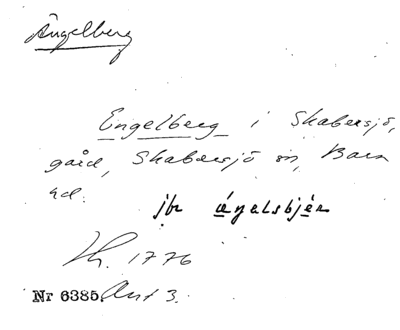 Ängelberg
Engelberg i Skabersjö,
gård, Skabersjö sn, Bara
hd.
jbr
Th. 1776
Nr 6385. Ant 3.